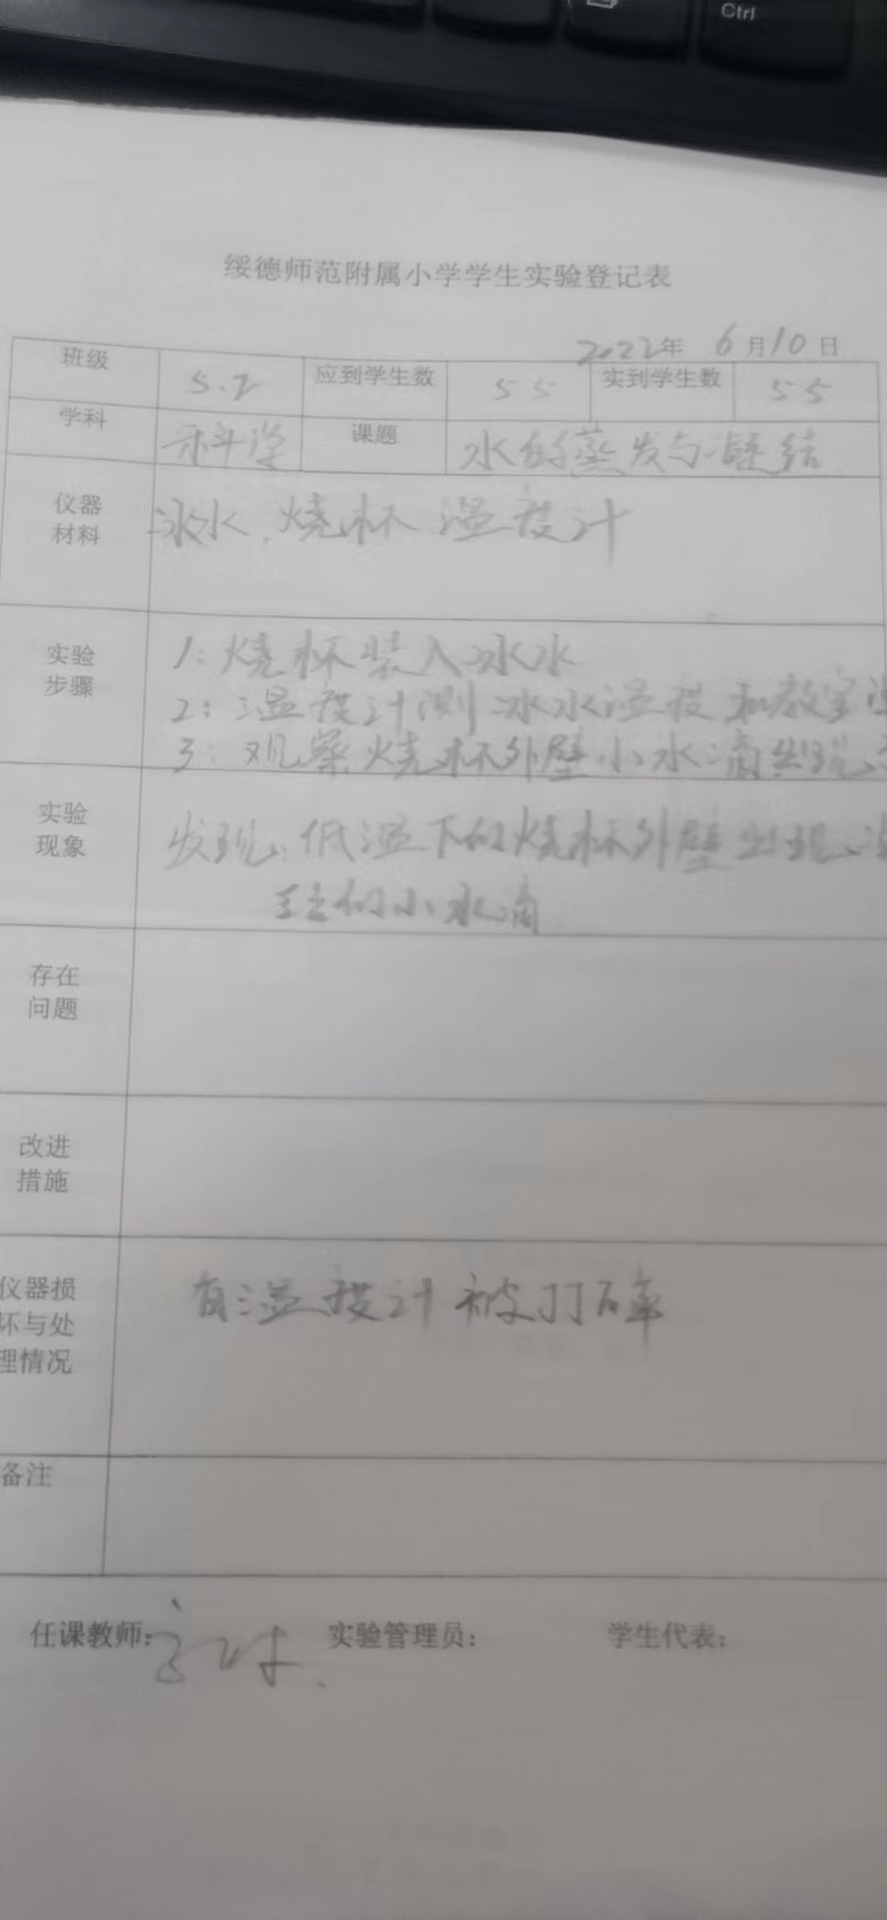 Ctrl
绥德师范附属小学学生实验登记表
2022年 6月10日
班级 5.2 应到学生数 55 实到学生数 55
学科 科学 课题 水的蒸发与凝结
仪器 冰水、烧杯 温度计
材料
实验 1:烧杯装入冰水
步骤 2:温度计测冰水温度和教室
3:观察烧杯外壁小水滴出现
实验 发现:低温下的烧杯外壁出现
现象 结的小水滴
存在
问题
改进
措施
仪器损 有温度计被打碎
坏与处
理情况
备注
任课教师: 实验管理员: 学生代表: